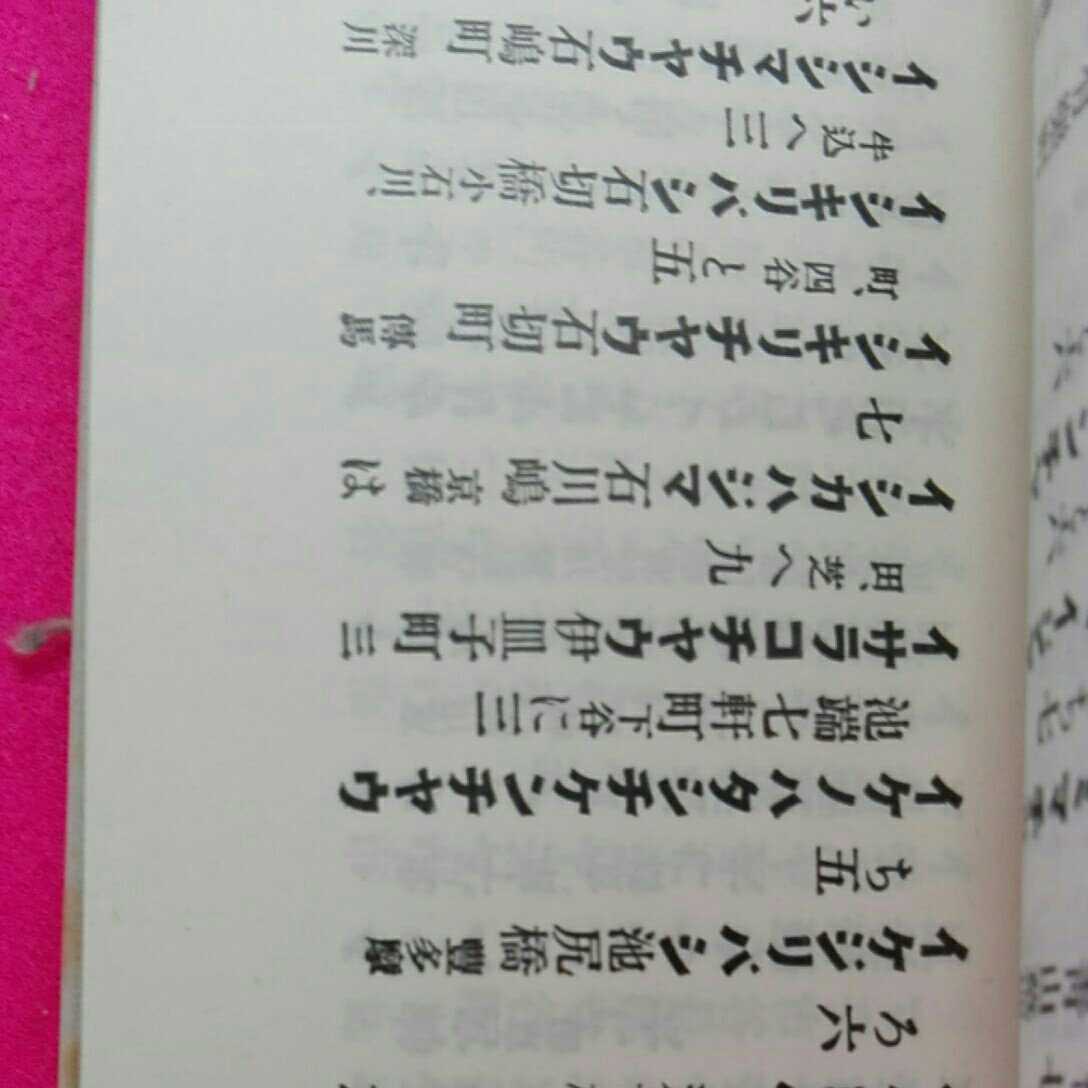 ろ六
イケジリバシ池尻橋 豐多摩
ち五
イケノハタシチケンチヤウ
池端七軒町下谷に三
イサラコチヤウ伊皿子町 三
田、芝へ九
イシカハジマ石川嶋 京橋は
七
イシキリチヤウ石切町 傳馬
町、四谷と五
イシキリバシ石切橋小石川、
牛込へ三
イシジマチヤウ石嶋町 深川
六